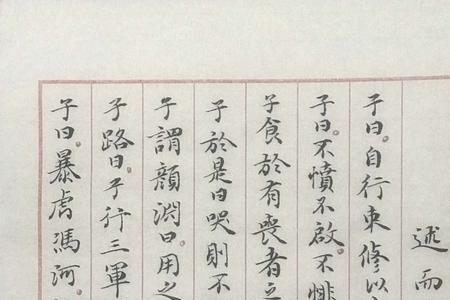 述而
子曰。自行束修以
子曰。不憤不啟。不悱
子食於有喪者之
子於是日哭則不
子謂顏淵曰用之
子路曰。子行三軍
子曰。暴虎馮河。